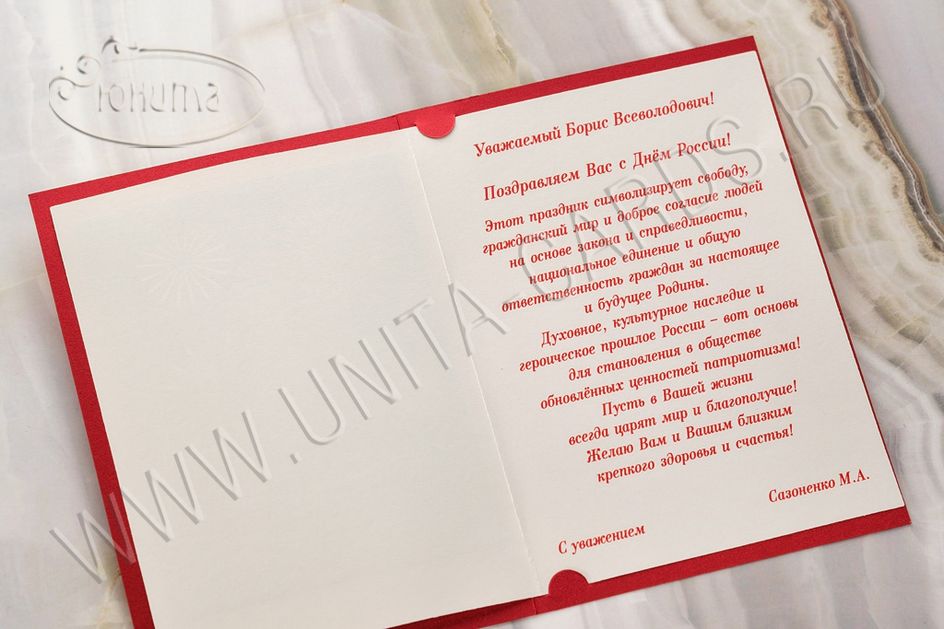 Юнита
Уважаемый Борис Всеволодович!
Поздравляем Вас с Днём России!
Этот праздник символизирует свободу,
гражданский мир и доброе согласие людей
на основе закона и справедливости,
национальное единение и общую
ответственность граждан за настоящее
и будущее Родины.
Духовное, культурное наследие и
героическое прошлое России – вот основы
для становления в обществе
обновлённых ценностей патриотизма!
Пусть в Вашей жизни
всегда царят мир и благополучие!
Желаю Вам и Вашим близким
крепкого здоровья и счастья!
С уважением
Сазоненко М.А.
WWW.UNITA-CARDS.RU